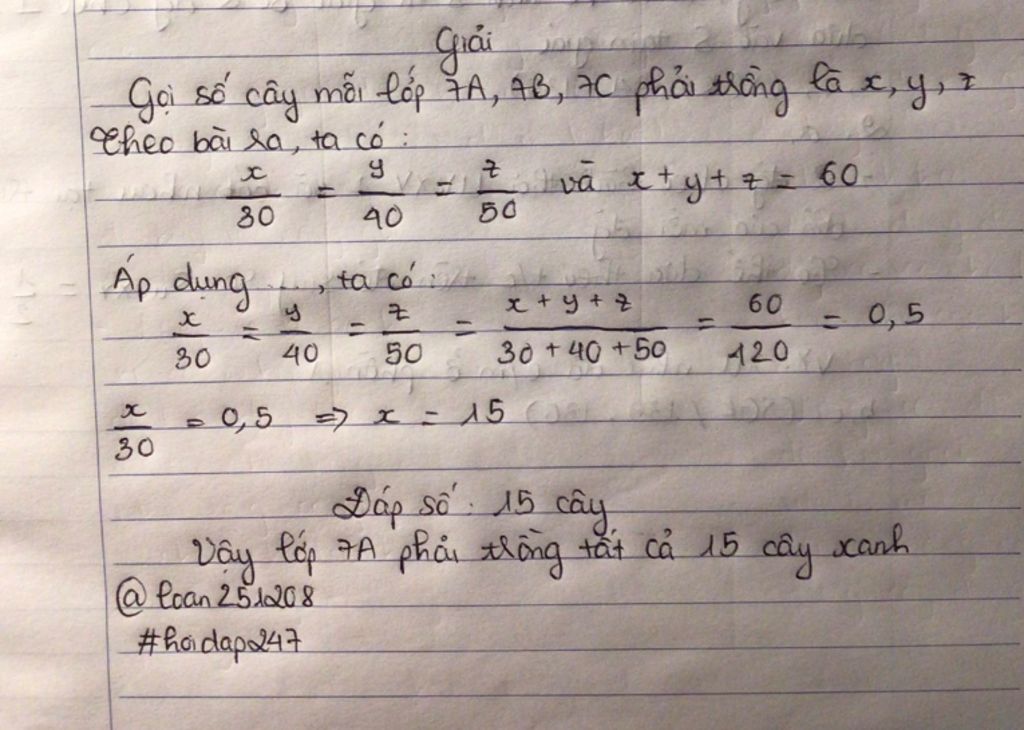 Giải
Gọi số cây mỗi lớp 7A, 7B, 7C phải trồng là x, y, z
Theo bài ra, ta có :
x/30 = y/40 = z/50 và x + y + z = 60
Áp dụng , ta có :
x/30 = y/40 = z/50 = (x + y + z)/(30 + 40 + 50) = 60/120 = 0,5
x/30 = 0,5 => x = 15
Đáp số : 15 cây
Vậy lớp 7A phải trồng tất cả 15 cây xanh
@loan251208
#hoidap247